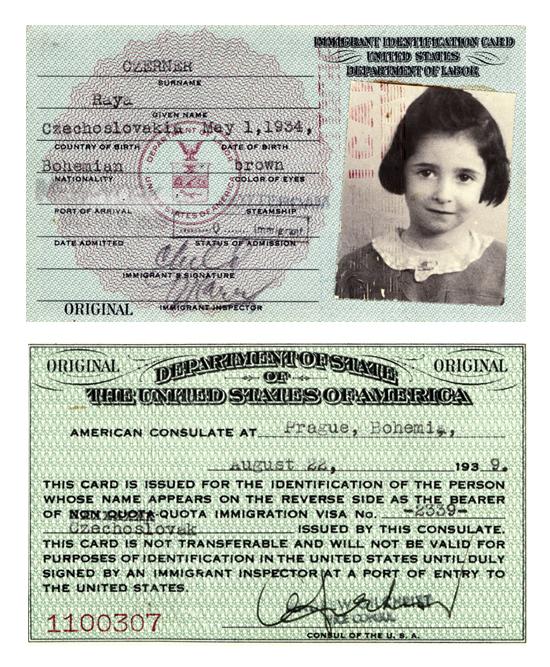 IMMIGRANT IDENTIFICATION CARD
UNITED STATES
DEPARTMENT OF LABOR
CZERNER
SURNAME
Raya
GIVEN NAME
Czechoslovakia May 1,1934,
COUNTRY OF BIRTH DATE OF BIRTH
Bohemian brown
NATIONALITY COLOR OF EYES
DEPARTMENT OF LABOR
UNITED STATES OF AMERICA
PORT OF ARRIVAL STEAMSHIP
Immigrant
DATE ADMITTED STATUS OF ADMISSION
IMMIGRANT'S SIGNATURE
ORIGINAL IMMIGRANT INSPECTOR
ORIGINAL DEPARTMENT OF STATE ORIGINAL
OF
THE UNITED STATES OF AMERICA
AMERICAN CONSULATE AT Prague, Bohemia,
August 22, 193 9.
THIS CARD IS ISSUED FOR THE IDENTIFICATION OF THE PERSON
WHOSE NAME APPEARS ON THE REVERSE SIDE AS THE BEARER
OF NON QUOTA-QUOTA IMMIGRATION VISA No. -2339-
Czechoslovak ISSUED BY THIS CONSULATE.
THIS CARD IS NOT TRANSFERABLE AND WILL NOT BE VALID FOR
PURPOSES OF IDENTIFICATION IN THE UNITED STATES UNTIL DULY
SIGNED BY AN IMMIGRANT INSPECTOR AT A PORT OF ENTRY TO
THE UNITED STATES.
VICE CONSUL
1100307 CONSUL OF THE U. S. A.